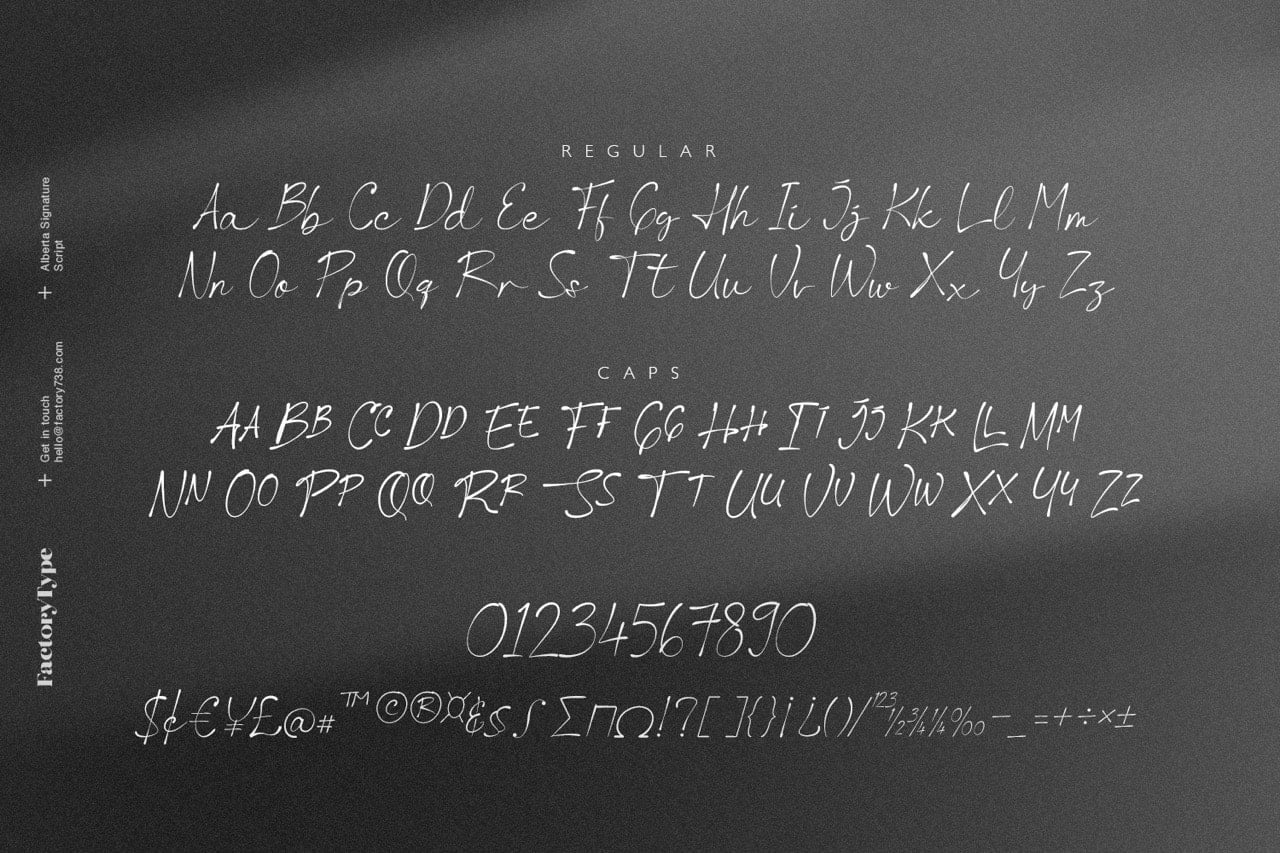 REGULAR
Aa Bb Cc Dd Ee Ff Gg Hh Ii Jj Kk Ll Mm
Nn Oo Pp Qq Rr Ss Tt Uu Vv Ww Xx Yy Zz
CAPS
AA BB CC DD EE FF GG HH II JJ KK LL MM
NN OO PP QQ RR SS TT UU VV WW XX YY ZZ
01234567890
$¢€¥£@#™©®¤&§∫∑∏Ω!?[]{}¡¿()/¹²³½¾¼%‰–_=+÷×±
Alberta Signature
Script
+
Get in touch
hello@factory738.com
+
FactoryType